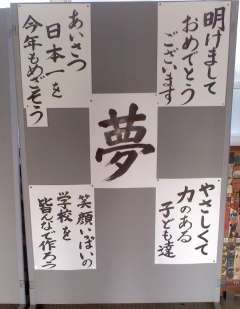 明けまして
おめでとう
ございます
あいさつ
日本一を
今年もめざそう
夢
やさしくて
力のある
子ども達
笑顔いっぱいの
学校を
皆んなで作ろう